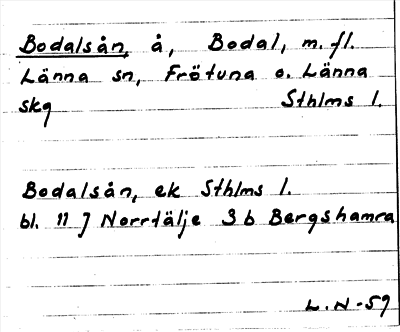 Bodalsån, å, Bodal, m. fl.
Länna sn, Frötuna o. Länna
skg Sthlms l.
Bodalsån, ek Sthlms l.
bl. 11 J Norrtälje 3 b Bergshamra
L. N -59